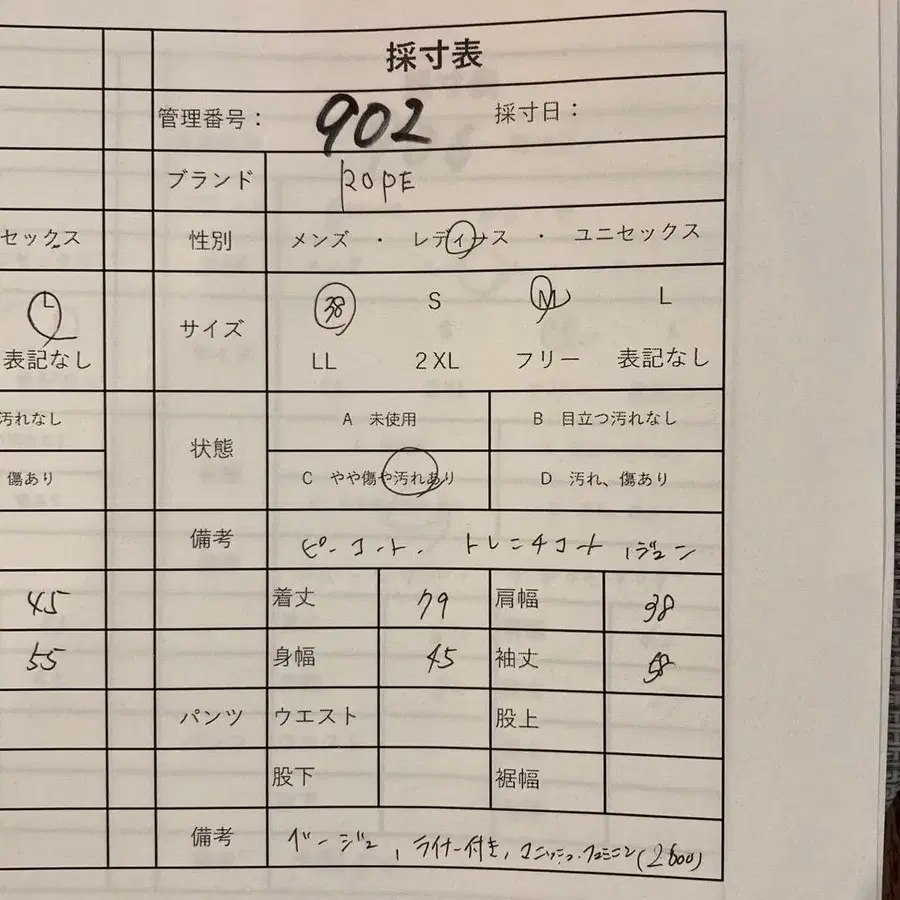 採寸表
管理番号： 902 採寸日：
ブランド ROPE
セックス
性別 メンズ ・ レディース ・ ユニセックス
L
38 S M L
サイズ
表記なし
LL 2XL フリー 表記なし
汚れなし
A 未使用 B 目立つ汚れなし
状態
傷あり
C やや傷や汚れあり D 汚れ、傷あり
備考 ピーコート. トレンチコート
45 着丈 79 肩幅 38
55 身幅 45 袖丈 58
パンツ ウエスト 股上
股下 裾幅
備考 ベージュ, ライナー付き, (2600)